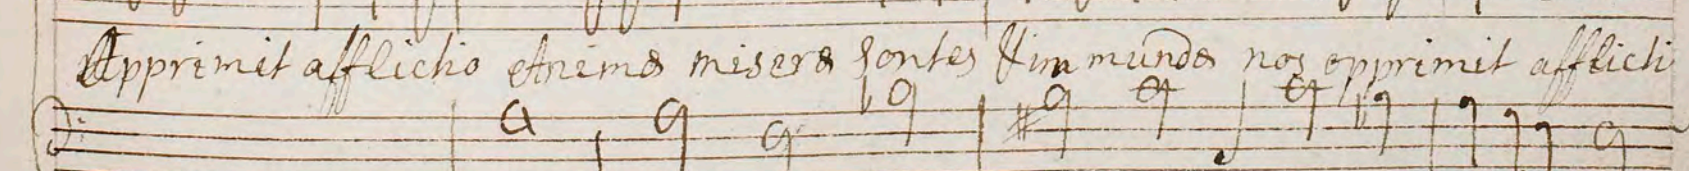 Opprimit afflictio Animæ miseræ sontes Him mundæ nos opprimit afflicti